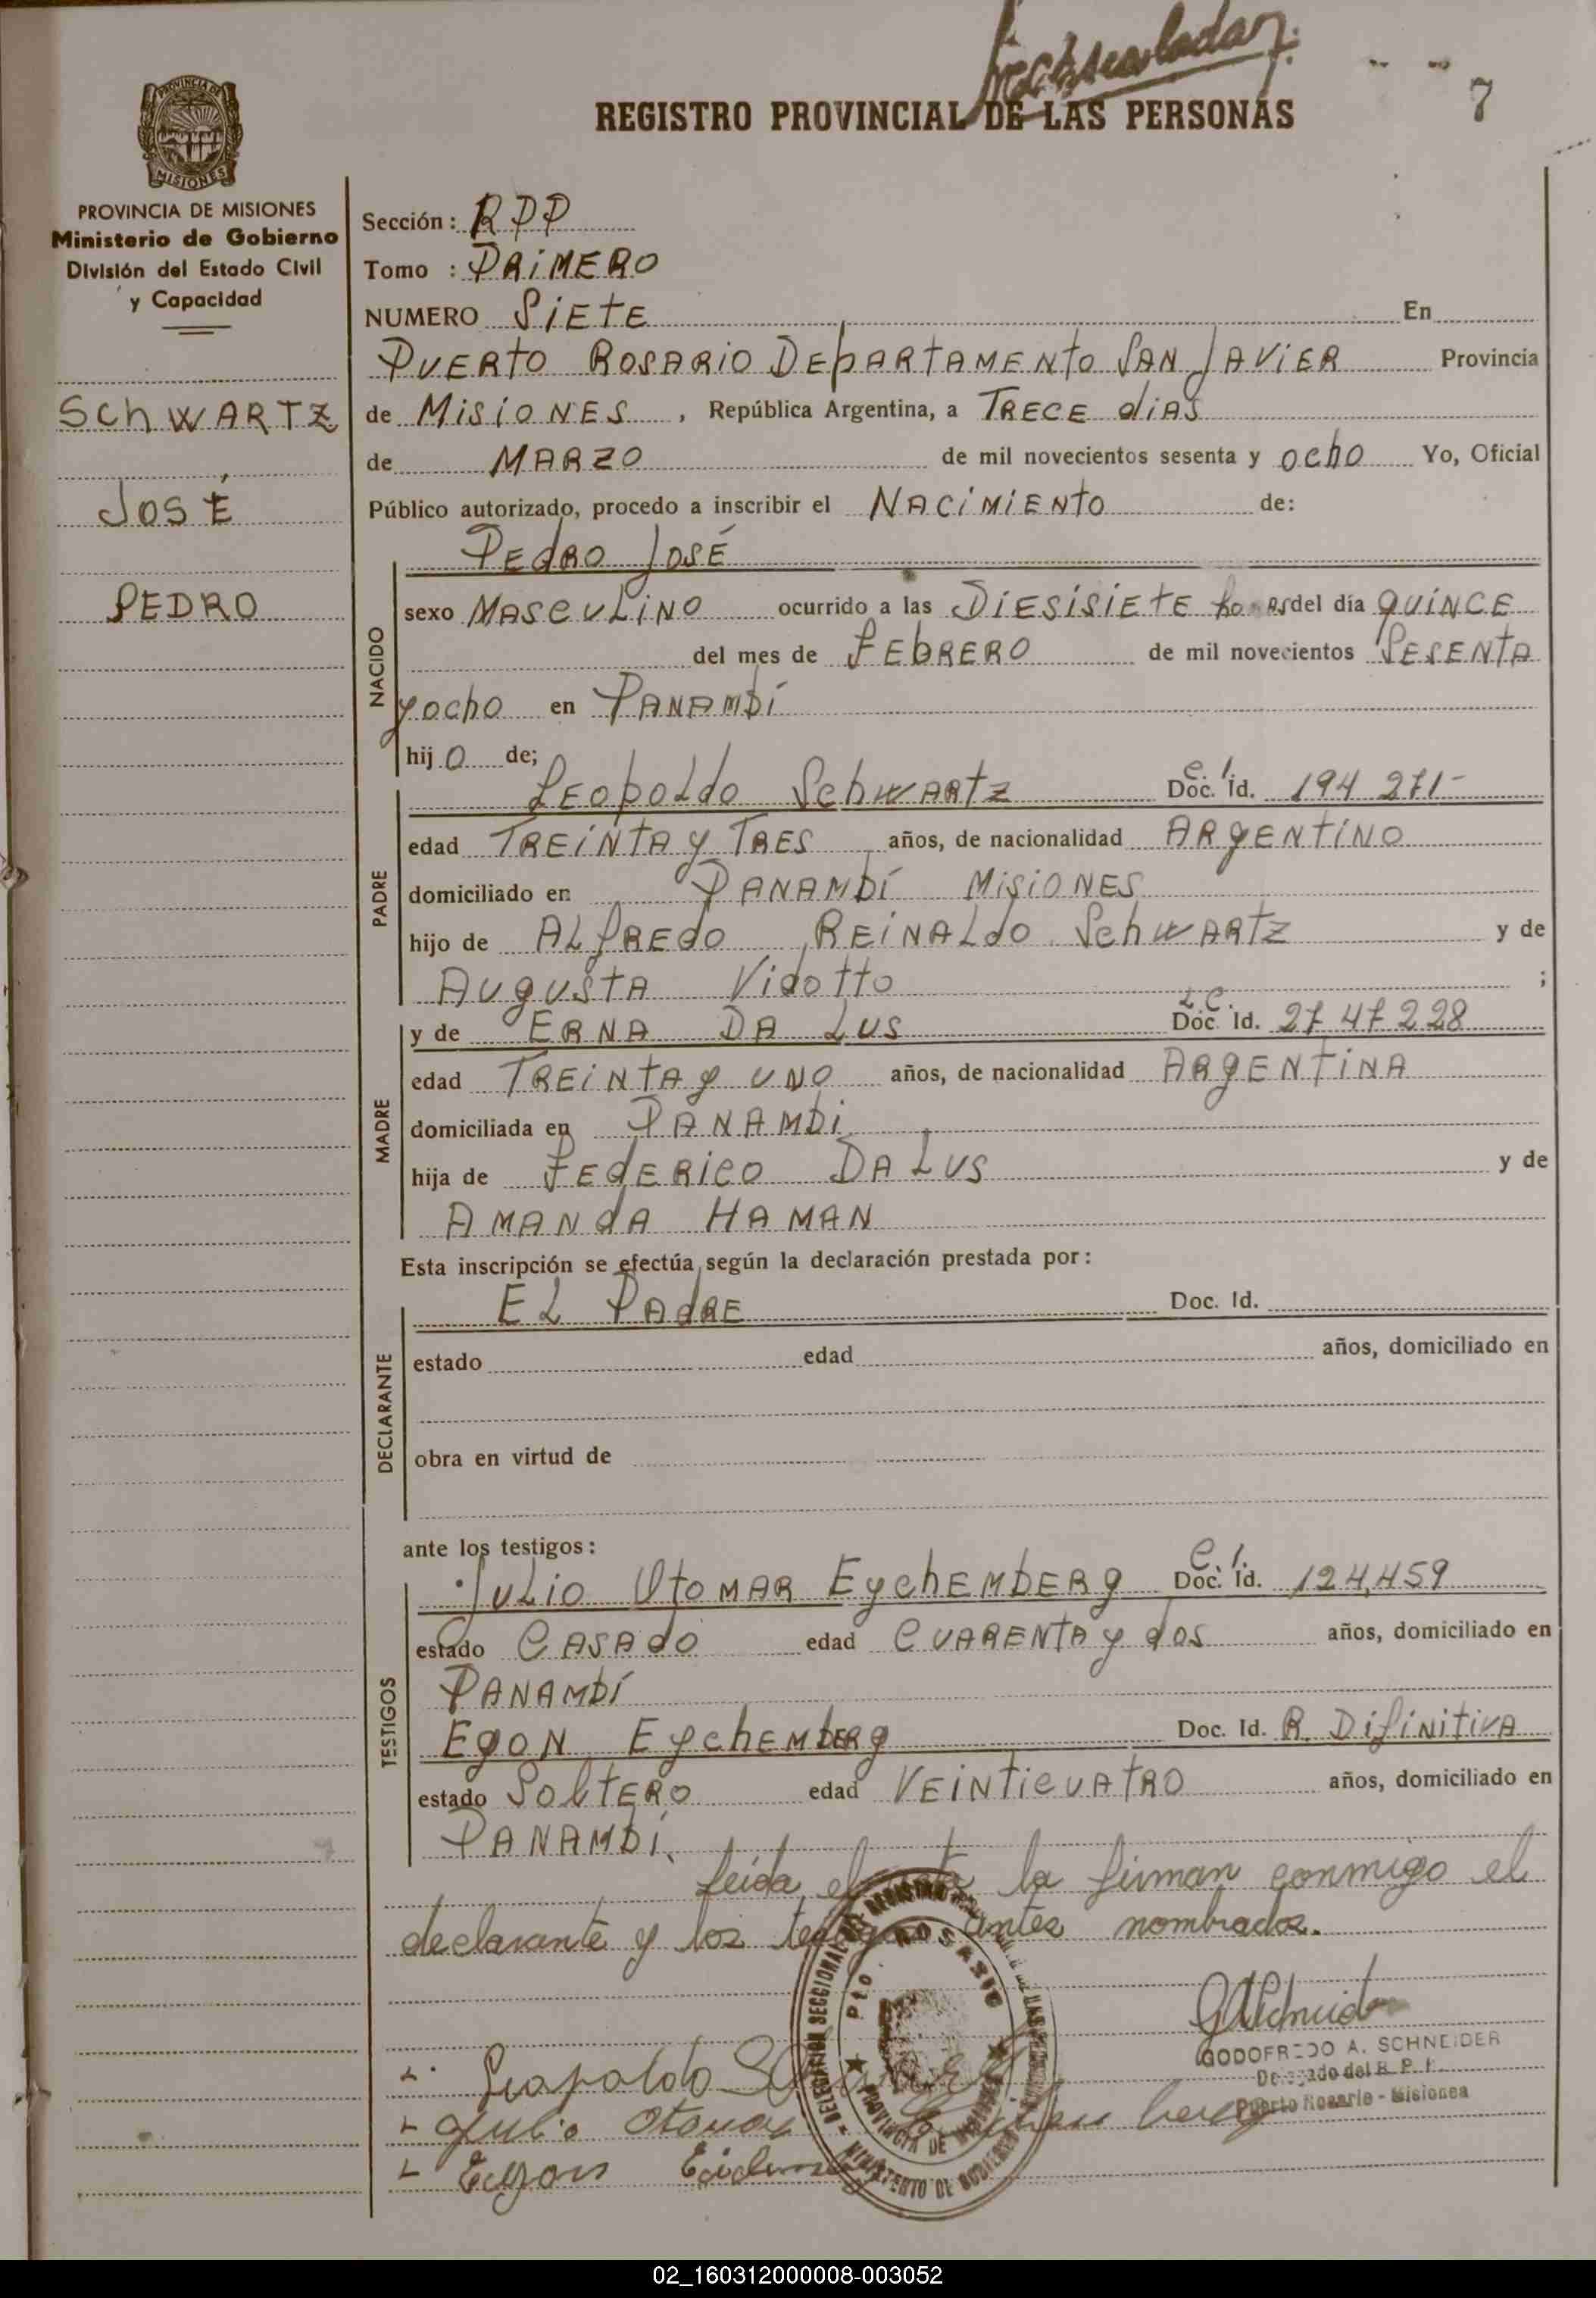 REGISTRO PROVINCIAL DE LAS PERSONAS
7
PROVINCIA DE
MISIONES
PROVINCIA DE MISIONES
Ministerio de Gobierno
División del Estado Civil
y Capacidad
SCHWARTZ
JOSÉ
PEDRO
Sección: RPP
Tomo : PRIMERO
NUMERO SIETE En
PUERTO ROSARIO DEPARTAMENTO SAN JAVIER Provincia
de MISIONES, República Argentina, a TRECE dIAS
de MARZO de mil novecientos sesenta y ocho Yo, Oficial
Público autorizado, procedo a inscribir el NACIMIENTO de:
PEdRO JOSÉ
NACIDO
sexo MASCULINO ocurrido a las DIESISIETE horas del día QUINCE
del mes de FEbRERO de mil novecientos SESENTA
y ocho en PANAMBÍ
hijo de;
PADRE
LEOPOLdO SchwARTZ C.I. Doc. Id. 194 271-
edad TREINTA y TRES años, de nacionalidad ARgENTINO
domiciliado en PANAMBÍ MISIONES
hijo de ALfREdO REINALdO SchwARTZ y de
AUgUSTA Vidotto ;
MADRE
y de ERNA DA LUS L.C. Doc. Id. 27 47 228
edad TREINTA y UNO años, de nacionalidad ARgENTINA
domiciliada en PANAMBI
hija de FEdERICO DA LUS y de
AMANdA HAMAN
Esta inscripción se efectúa según la declaración prestada por:
DECLARANTE
EL PAdRE Doc. Id.
estado edad años, domiciliado en
obra en virtud de
ante los testigos:
TESTIGOS
JULIO UtOMAR EychEMBERg C.I. Doc. Id. 124,459
estado CASAdO edad CUARENTA y dOS años, domiciliado en
PANAMBÍ
EgON EychEMBERg Doc. Id. R. DifiNitiVA
estado SOLTERO edad VEINTICUATRO años, domiciliado en
PANAMBÍ.
Leida el acta la firman conmigo el
declarante y los testigos antes nombrados.
DELEGACION SECCIONAL DEL REGISTRO
Pto. ROSARIO
PROVINCIA DE MISIONES
MINISTERIO DE GOBIERNO
GODOFREDO A. SCHNEIDER
Delegado del R. P. P.
Puerto Rosario - Misiones
Leopoldo
Julio
Egon
02_160312000008-003052